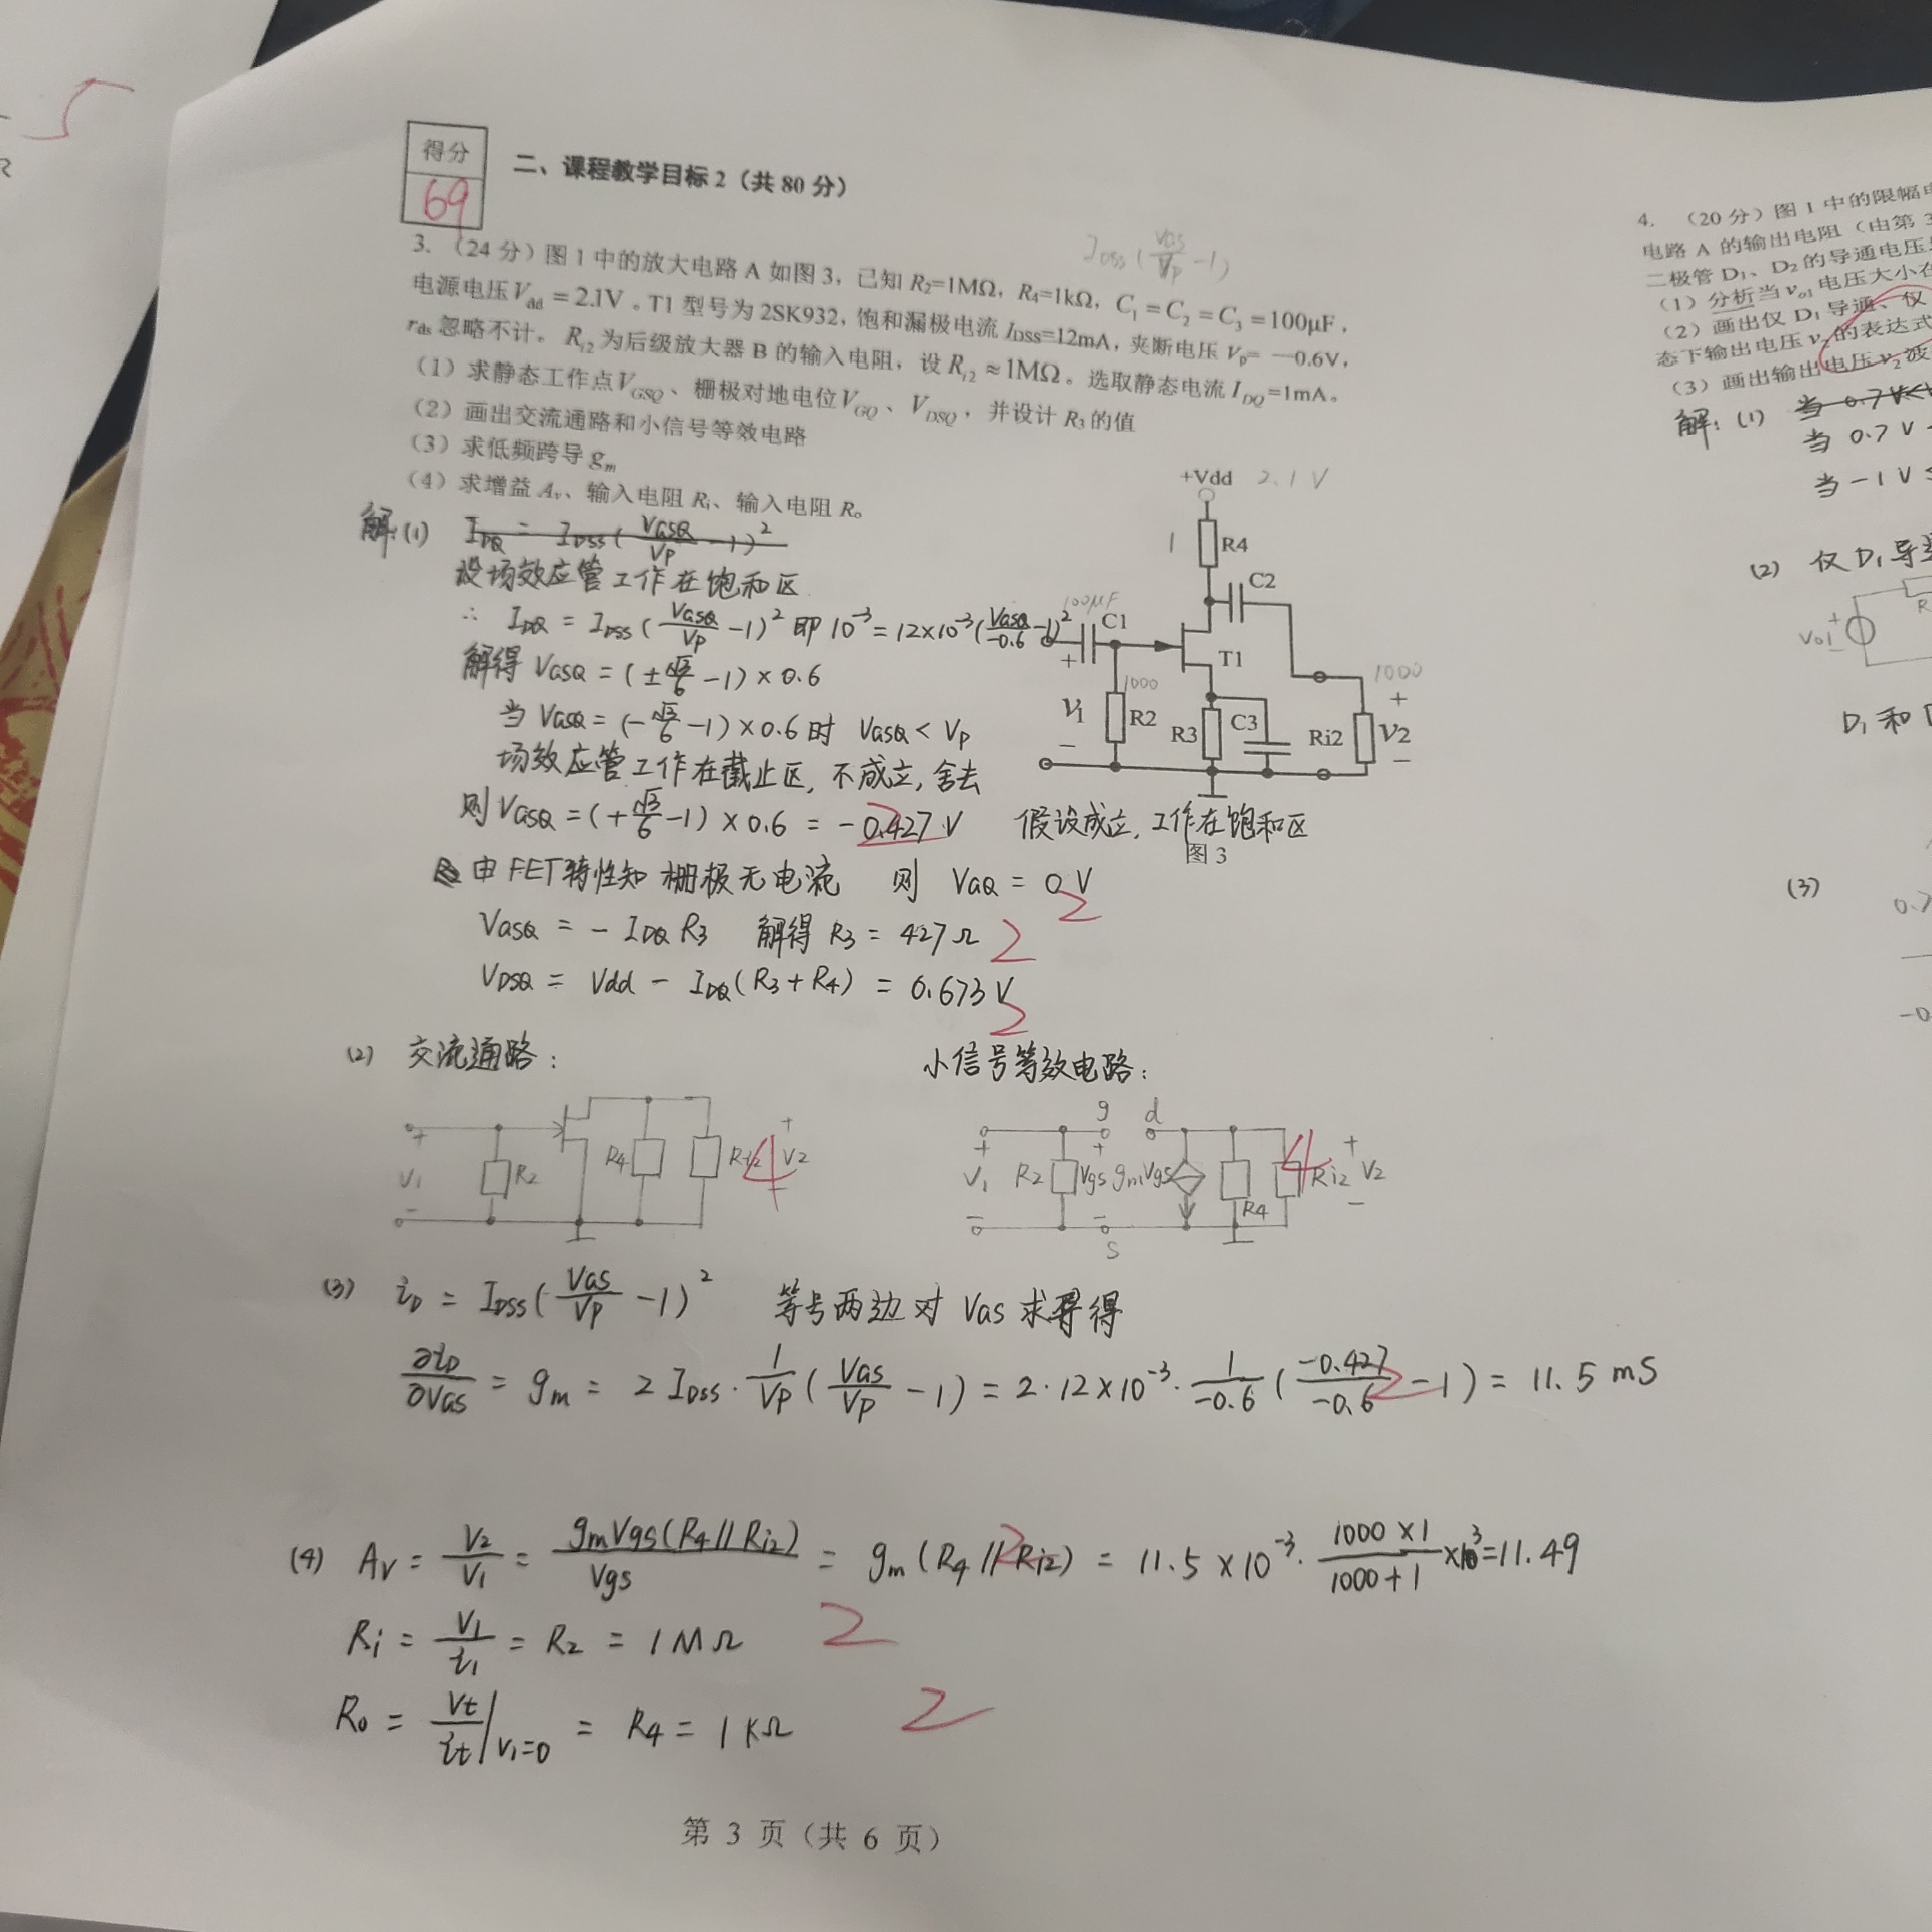 5
得分
69
二、课程教学目标 2（共 80 分）
I_DSS(V_GS/V_P - 1)
3. （24 分）图 1 中的放大电路 A 如图 3，已知 R₂=1MΩ，R₄=1kΩ，C₁ = C₂ = C₃ =100μF，
电源电压 V_dd = 2.1V 。T1 型号为 2SK932，饱和漏极电流 I_DSS=12mA，夹断电压 V_P= —0.6V，
r_ds 忽略不计。 R_i2 为后级放大器 B 的输入电阻，设 R_i2 ≈1MΩ 。选取静态电流 I_DQ =1mA。
（1）求静态工作点 V_GSQ 、栅极对地电位 V_GQ 、 V_DSQ ，并设计 R₃ 的值
（2）画出交流通路和小信号等效电路
（3）求低频跨导 g_m
（4）求增益 A_v、输入电阻 R_i、输入电阻 R_o。
+Vdd 2.1V
1 R4
C2
100μF
C1
T1
1000
1000
+ V₁ −
R2
R3
C3
Ri2
+ V2 −
图 3
解:(1) I_DQ = I_DSS(V_GSQ/V_P - 1)²
设场效应管工作在饱和区
∴ I_DQ = I_DSS(V_GSQ/V_P - 1)² 即 10⁻³ = 12×10⁻³(V_GSQ/-0.6 - 1)²
解得 V_GSQ = (±√3/6 - 1) × 0.6
当 V_GSQ = (-√3/6 - 1) × 0.6 时 V_GSQ < V_P
场效应管工作在截止区, 不成立, 舍去
则 V_GSQ = (+√3/6 - 1) × 0.6 = -0.427 V 假设成立, 工作在饱和区
2
由 FET 特性知 栅极无电流 则 V_GQ = 0 V
2
V_GSQ = - I_DQ R₃ 解得 R₃ = 427 Ω 2
V_DSQ = Vdd - I_DQ(R₃ + R₄) = 0.673 V
2
(2) 交流通路: 小信号等效电路:
+ V₁ − R₂ R4 Ri2 + V2 − 4
g d
+ V₁ − R2 + Vgs − gmVgs R4 Ri2 + V2 − 4
S
(3) i_D = I_DSS(V_GS/V_P - 1)² 等号两边对 V_GS 求导得
∂i_D/∂V_GS = g_m = 2 I_DSS · 1/V_P (V_GS/V_P - 1) = 2·12×10⁻³· 1/-0.6 (-0.427/-0.6 - 1) = 11.5 mS
2
(4) A_V = V₂/V₁ = g_mVgs(R₄//Ri2)/Vgs = g_m(R₄//Ri2) = 11.5 ×10⁻³· 1000×1/1000+1 ×10³=11.49
2
R_i = V₁/i₁ = R₂ = 1MΩ 2
R₀ = Vt/it|V₁=0 = R₄ = 1kΩ 2
第 3 页（共 6 页）
4. （20 分）图 1 中的限幅
电路 A 的输出电阻（由第 3
二极管 D₁、D₂ 的导通电压
（1）分析当 v_o1 电压大小在
（2）画出仅 D₁ 导通、仅
态下输出电压 v₂ 的表达式
（3）画出输出电压 v₂ 波
解: (1) 当 0.7V<
当 0.7V
当 -1V ≤
(2) 仅 D₁ 导
Vo1 + −
R
D₁ 和
(3)
0.7
-0